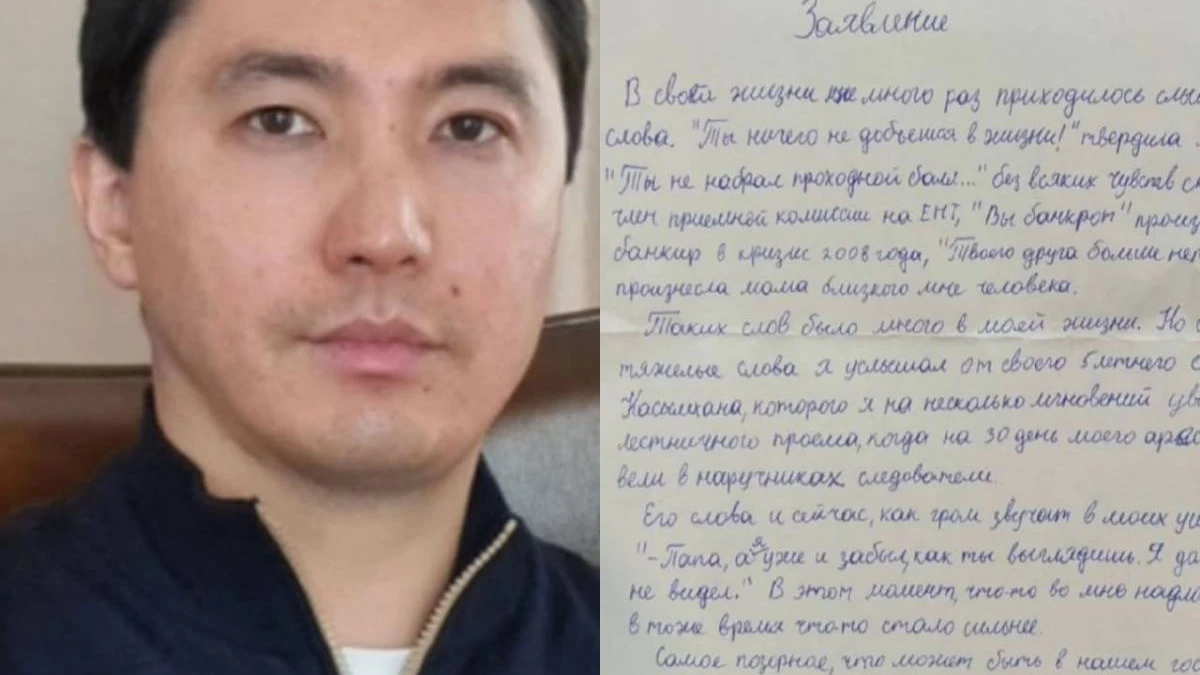 Заявление
В своей жизни мне много раз приходилось слы
слова. "Ты ничего не добьешся в жизни!" твердила
"Ты не набрал проходной балл..." без всяких чувств с
член приемной комиссии на ЕНТ, "Вы банкрот" произ
банкир в кризис 2008 года, "Твоего друга больше нет
произнесла мама близкого мне человека.
Таких слов было много в моей жизни. Но
тяжелые слова я услышал от своего 5летнего с
Касылхана, которого я на несколько мгновений ув
лестничного проема, когда на 30 день моего
вели в наручниках следователи.
Его слова и сейчас, как гром звучат в моих у
"-Папа, а я уже и забыл, как ты выглядишь. Я да
не видел." В этот момент, что-то во мне надло
в тоже время что-то стало сильнее.
Самое позорное, что может быть в нашем гос